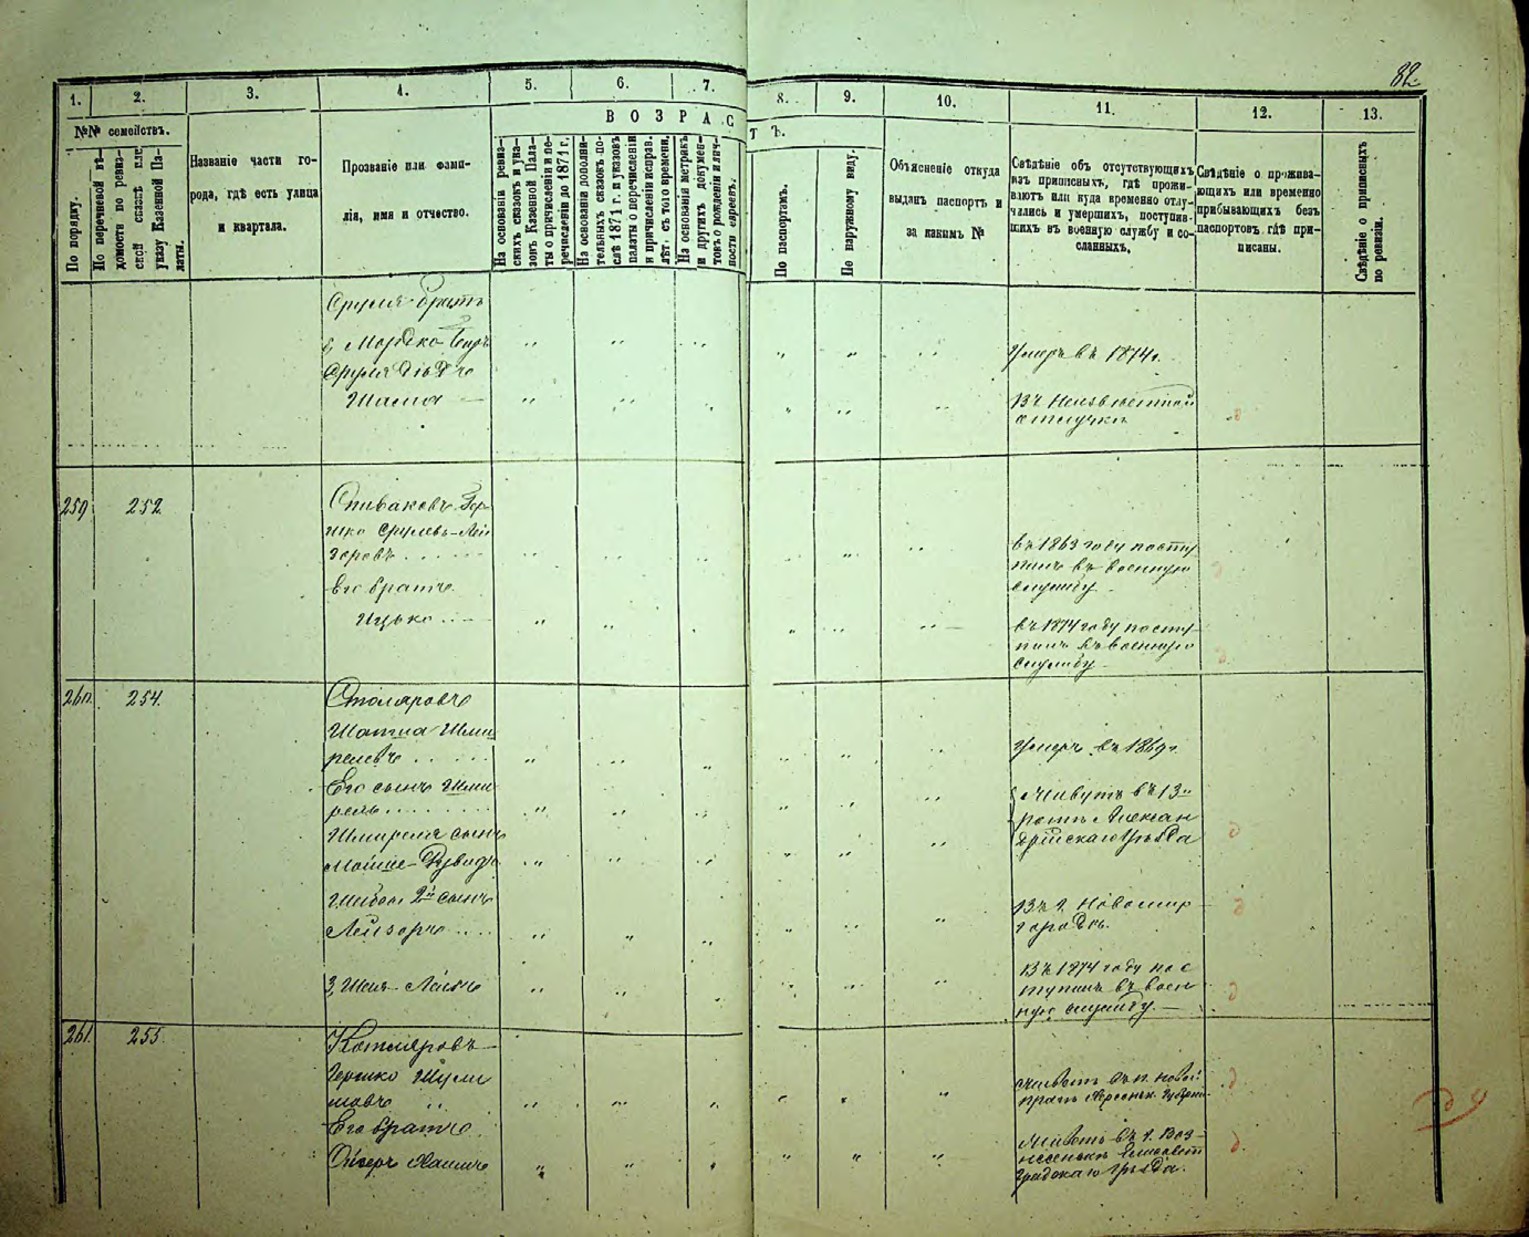 82.
1. 2. 3. 4. 5. 6. 7. 8. 9. 10. 11. 12. 13.
№№ семействъ.
По порядку.
По перечневой вѣ-
домости по ревиз-
ской сказкѣ или
указу Казенной Па-
латы.
Названіе части го-
рода, гдѣ есть улица
и квартала.
Прозваніе или фами-
лія, имя и отчество.
ВОЗРАСТЪ.
На основаніи ревиз-
скихъ сказокъ и ука-
зовъ Казенной Пала-
ты о причисленіи и пе-
речисленіи до 1871 г.
На основаніи дополни-
тельныхъ сказокъ по-
слѣ 1871 г. и указовъ
палаты о перечисленіи
и причисленіи исправ.
лѣт. съ того времени.
На основаніи метрикъ
и другихъ докумен-
товъ о рожденіи и лич-
ности евреевъ.
По паспортамъ.
По наружному виду.
Объясненіе откуда
выданъ паспортъ и
за какимъ №
Свѣдѣніе объ отсутствующихъ
изъ приписныхъ, гдѣ прожи-
ваютъ или куда временно отлу-
чились и умершихъ, поступив-
шихъ въ военную службу и со-
сланныхъ.
Свѣдѣніе о прожива-
ющихъ или временно
прибывающихъ безъ
паспортовъ гдѣ при-
писаны.
Свѣдѣніе о приписныхъ
по ревизіи.
Сруля братъ
Мордко
Умеръ въ 1874 г.
Сруля дядя
Шама
Въ неизвѣстной
отлучкѣ
259 252
Спиваковъ Гер-
шко Срулевъ-Лей
зоровъ
въ 1863 году посту
пилъ въ военную
службу
Его братъ
Ицько
въ 1874 году посту-
пилъ въ военную
службу
260. 254.
Столяровъ
Шапша Шми
релевъ
Умеръ въ 1869 г.
Его сынъ Шми
рель
Живутъ въ 13й
ротѣ Алексан
дрійскаго уѣзда
Шмиреля сынъ
Мойше-Дувидъ
2й сынъ
Лейзоръ
Въ г. Новомир
городѣ.
Въ 1874 году пос
тупилъ въ воен
ную службу.
261. 255.
Котляровъ
Гершко Шули
мовъ
Живетъ въ п. Новой
прагѣ Херсонск. Губерн.
Его братъ
Живетъ въ г. Воз-
несенскѣ Елисавет
градскаго уѣзда.